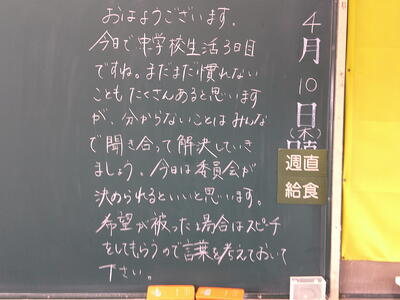 おはようございます。
今日で中学校生活3日目
ですね。まだまだ慣れない
こともたくさんあると思います
が、分からないことはみんな
で聞き合って解決していき
ましょう。今日は委員会が
決められるといいと思います。
希望が被った場合はスピチ
をしてもらうので言葉を考えておいて
下さい。
4月10日(木)
週直
給食